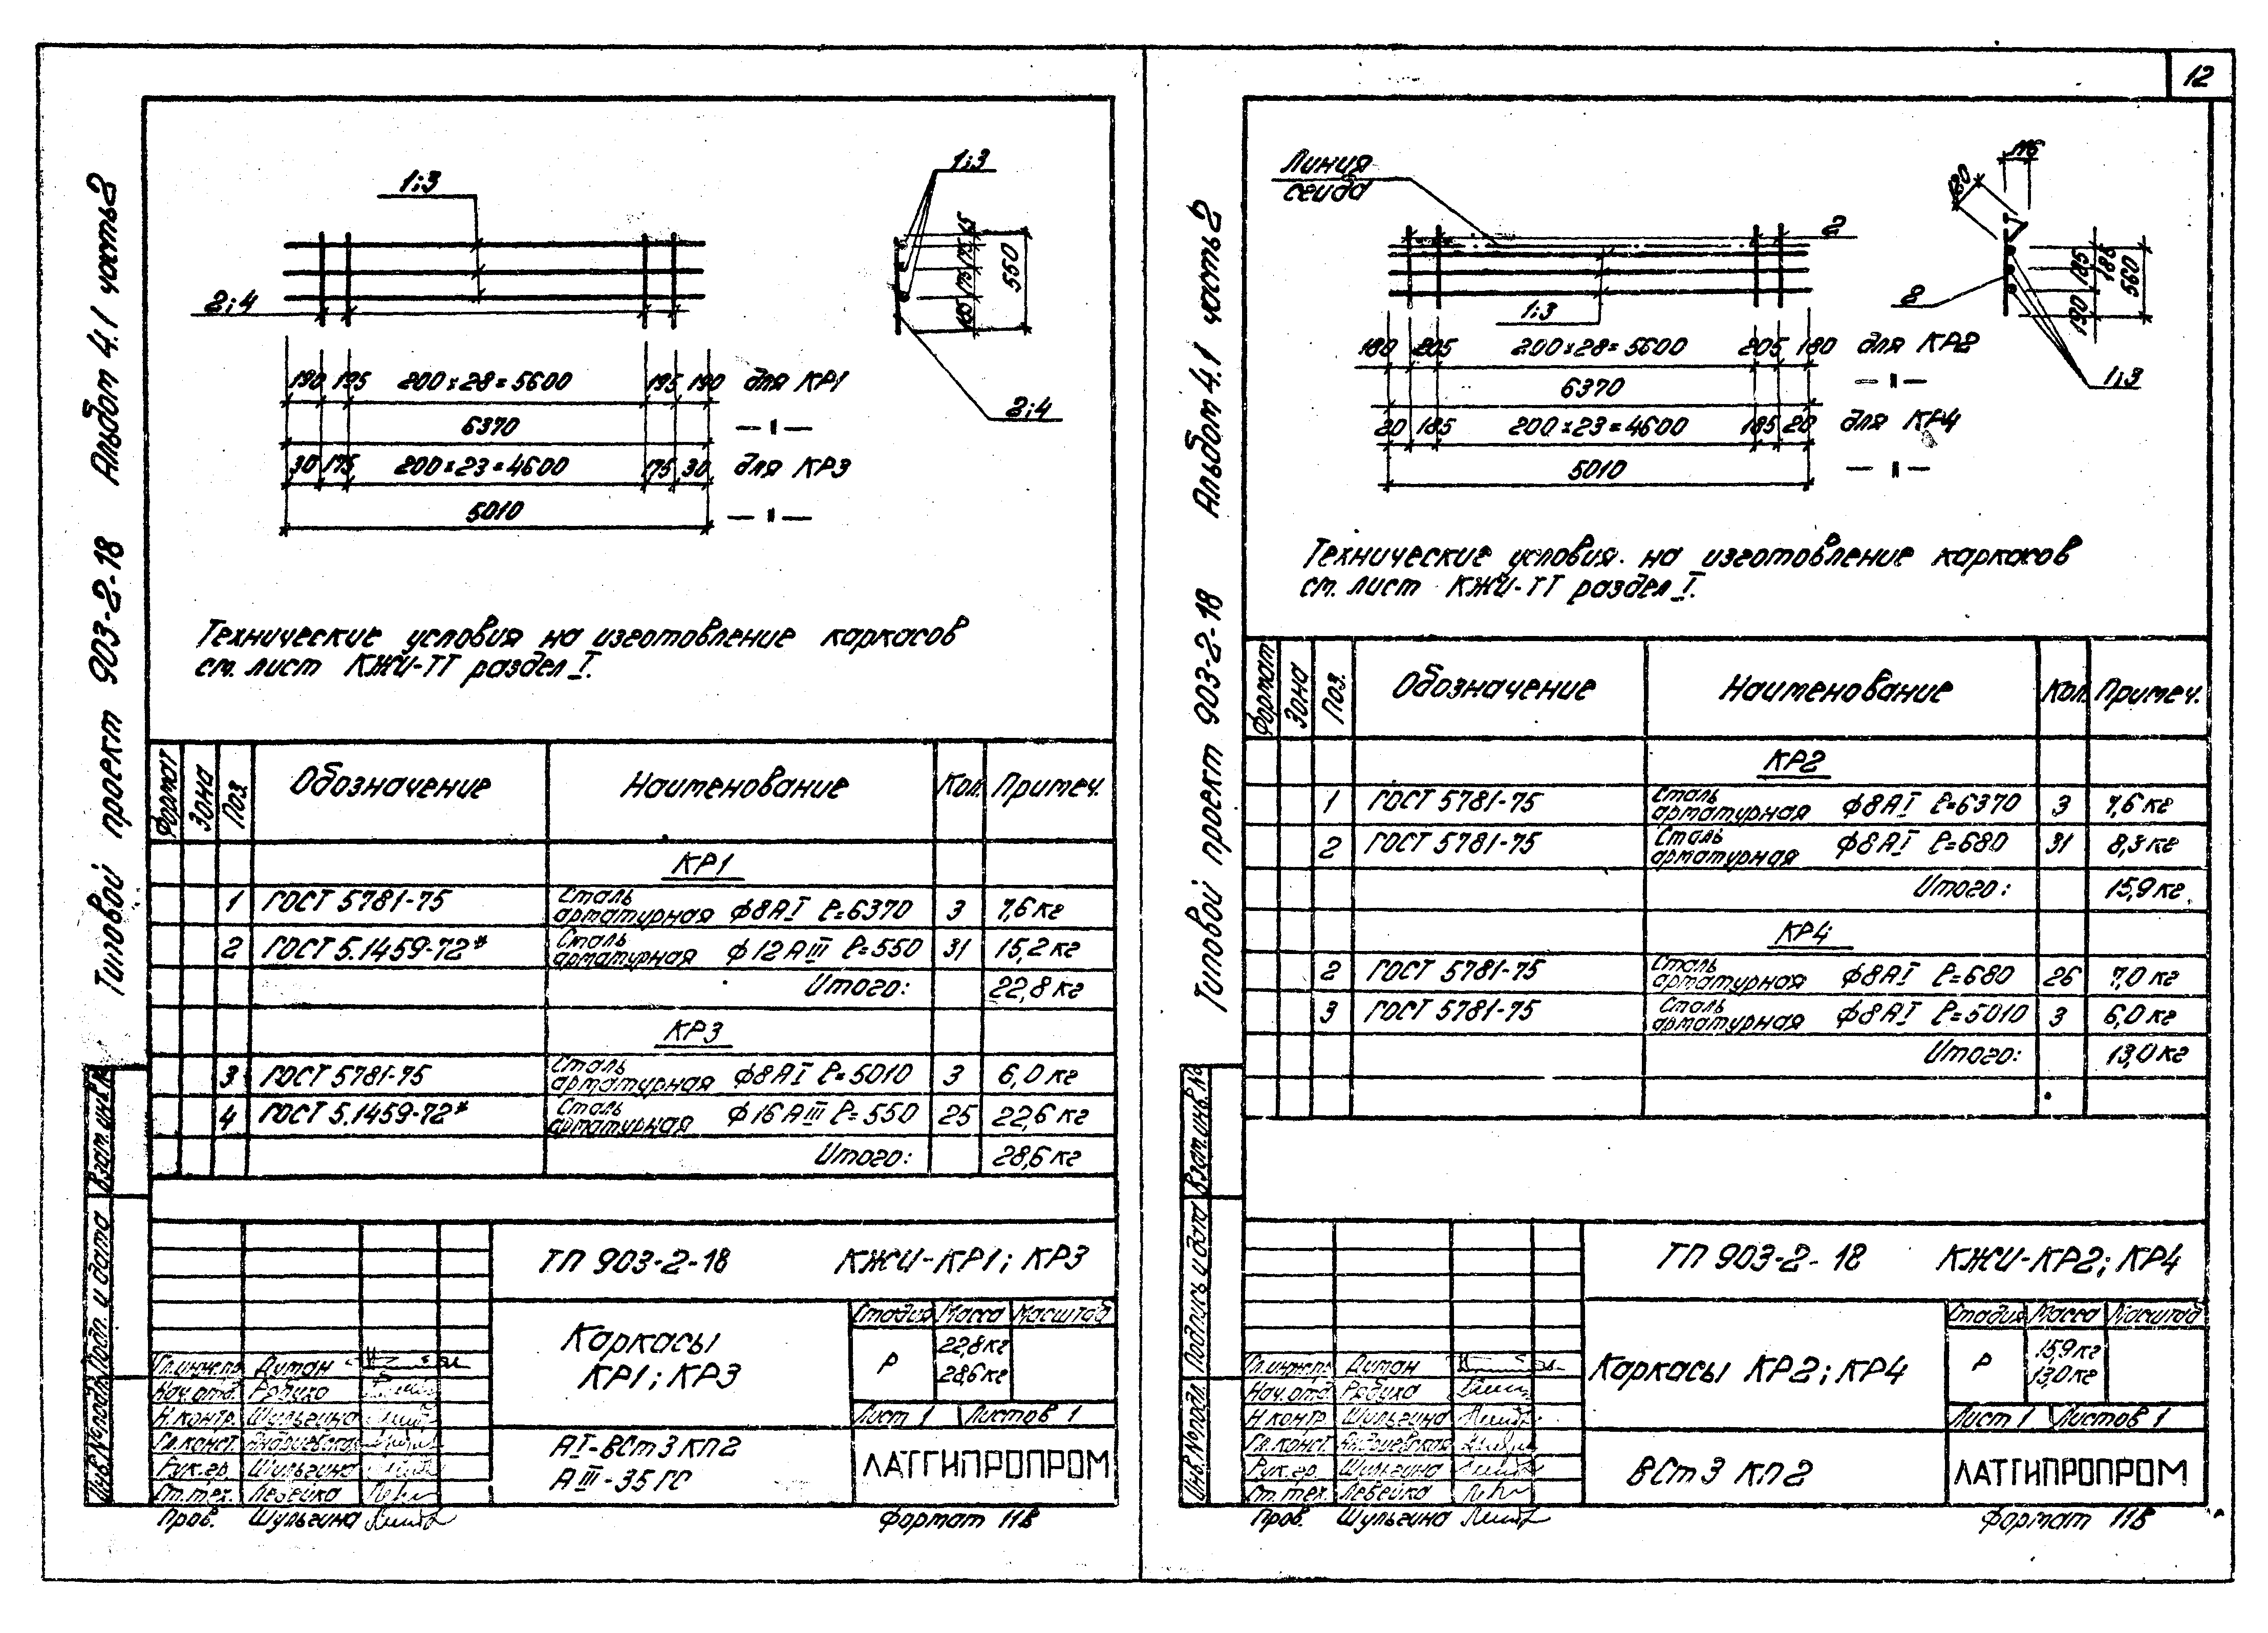 12
Типовой проект 903-2-18 Альбом 4.1 часть 2
1;3
2;4
1;3
65
175
175
165
550
2;4
190 195 200×28=5600 195 190 для КР1
6370 — || —
30 175 200×23=4600 175 30 для КР3
5010 — || —
Технические условия на изготовление каркасов
см. лист КЖИ-ТТ раздел I.
Формат Зона Поз. Обозначение Наименование Кол. Примеч.
КР1
1 ГОСТ 5781-75 Сталь арматурная ф8АI ℓ=6370 3 7,6 кг
2 ГОСТ 5.1459-72* Сталь арматурная ф12АIII ℓ=550 31 15,2 кг
Итого: 22,8 кг
КР3
3 ГОСТ 5781-75 Сталь арматурная ф8АI ℓ=5010 3 6,0 кг
4 ГОСТ 5.1459-72* Сталь арматурная ф16АIII ℓ=550 25 22,6 кг
Итого: 28,6 кг
ТП 903-2-18 КЖИ-КР1; КР3
Каркасы
КР1; КР3
Стадия Масса Масштаб
Р
22,8 кг
28,6 кг
Лист 1 Листов 1
АI-ВСт3кп2
АIII-35ГС
ЛАТГИПРОПРОМ
Гл.инж.пр. Думан
Нач.отд.
Н.контр. Шульгина
Гл.конст. Андриевская
Рук.гр. Шульгина
Ст.тех. Лебейка
Пров. Шульгина
Формат 11В
Инв.№подл. Подп. и дата Взам.инв.№
Типовой проект 903-2-18 Альбом 4.1 часть 2
Линия
сгиба
2
1;3
180 205 200×28=5600 205 180 для КР2
6370 — || —
20 185 200×23=4600 185 20 для КР4
5010 — || —
116
2
125
560
190
1;3
Технические условия на изготовление каркасов
см. лист КЖИ-ТТ раздел I.
Формат Зона Поз. Обозначение Наименование Кол. Примеч.
КР2
1 ГОСТ 5781-75 Сталь арматурная ф8АI ℓ=6370 3 7,6 кг
2 ГОСТ 5781-75 Сталь арматурная ф8АI ℓ=680 31 8,3 кг
Итого: 15,9 кг
КР4
2 ГОСТ 5781-75 Сталь арматурная ф8АI ℓ=680 26 7,0 кг
3 ГОСТ 5781-75 Сталь арматурная ф8АI ℓ=5010 3 6,0 кг
Итого: 13,0 кг
ТП 903-2-18 КЖИ-КР2; КР4
Каркасы КР2; КР4
Стадия Масса Масштаб
Р
15,9 кг
13,0 кг
Лист 1 Листов 1
ВСт3кп2
ЛАТГИПРОПРОМ
Гл.инж.пр. Думан
Нач.отд.
Н.контр. Шульгина
Гл.конст. Андриевская
Рук.гр. Шульгина
Ст.тех. Лебейка
Пров. Шульгина
Формат 11В
Инв.№подл. Подпись и дата Взам.инв.№